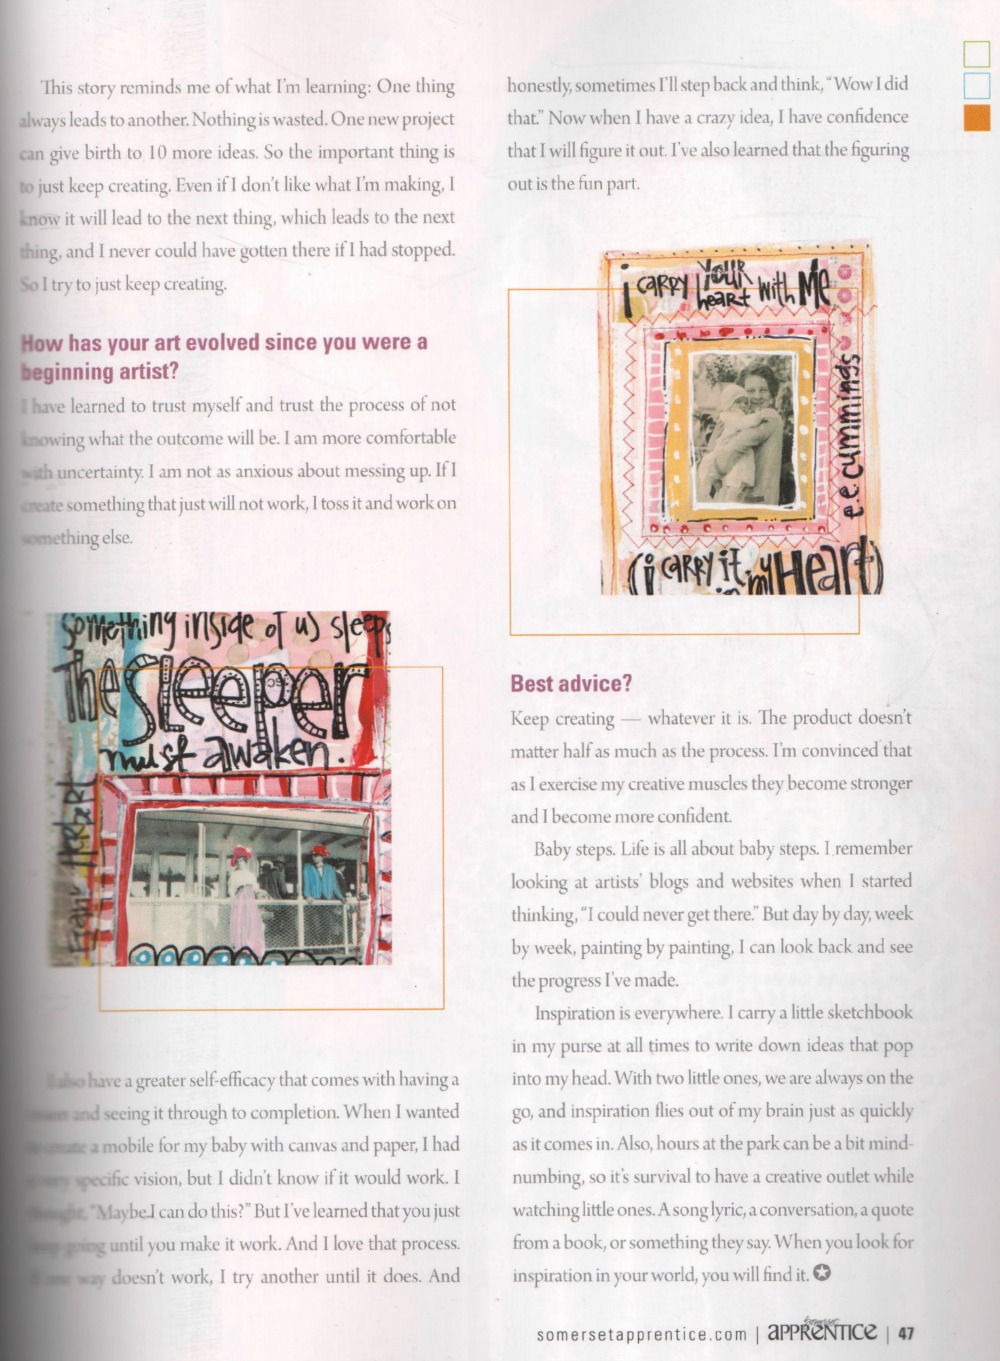 This story reminds me of what I'm learning: One thing
always leads to another. Nothing is wasted. One new project
can give birth to 10 more ideas. So the important thing is
to just keep creating. Even if I don't like what I'm making, I
know it will lead to the next thing, which leads to the next
thing, and I never could have gotten there if I had stopped.
So I try to just keep creating.
How has your art evolved since you were a
beginning artist?
I have learned to trust myself and trust the process of not
knowing what the outcome will be. I am more comfortable
with uncertainty. I am not as anxious about messing up. If I
create something that just will not work, I toss it and work on
something else.
something inside of us sleeps
The SLeeper
must awaken.
Frank Herbert
I also have a greater self-efficacy that comes with having a
vision and seeing it through to completion. When I wanted
to create a mobile for my baby with canvas and paper, I had
a very specific vision, but I didn't know if it would work. I
thought, "Maybe I can do this?" But I've learned that you just
keep going until you make it work. And I love that process.
If one way doesn't work, I try another until it does. And
honestly, sometimes I'll step back and think, "Wow I did
that." Now when I have a crazy idea, I have confidence
that I will figure it out. I've also learned that the figuring
out is the fun part.
i CARRY YOUR heart with Me
e.e. cummings
(i CARRY it in my Heart)
Best advice?
Keep creating — whatever it is. The product doesn't
matter half as much as the process. I'm convinced that
as I exercise my creative muscles they become stronger
and I become more confident.
Baby steps. Life is all about baby steps. I remember
looking at artists' blogs and websites when I started
thinking, "I could never get there." But day by day, week
by week, painting by painting, I can look back and see
the progress I've made.
Inspiration is everywhere. I carry a little sketchbook
in my purse at all times to write down ideas that pop
into my head. With two little ones, we are always on the
go, and inspiration flies out of my brain just as quickly
as it comes in. Also, hours at the park can be a bit mind-
numbing, so it's survival to have a creative outlet while
watching little ones. A song lyric, a conversation, a quote
from a book, or something they say. When you look for
inspiration in your world, you will find it.
somersetapprentice.com | somerset APPRENTICE | 47